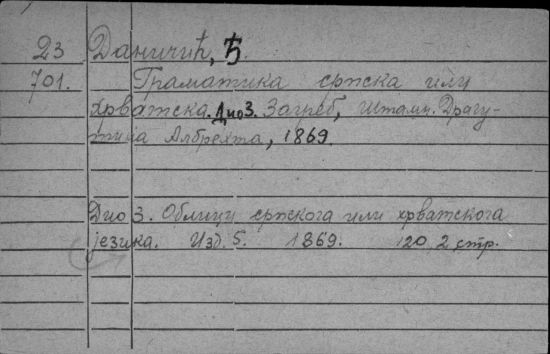 23 Даничић, Ђ.
701. Граматика српска или
хрватска. Дио 3. Загреб, штамп. Драгу-
тина Албрехта, 1869.
Дио 3. Облици српскога или хрватскога
језика. Изд. 5. 1869. 120, 2 стр.